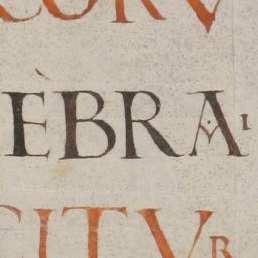 CORV
ÈBRAL
CITVR